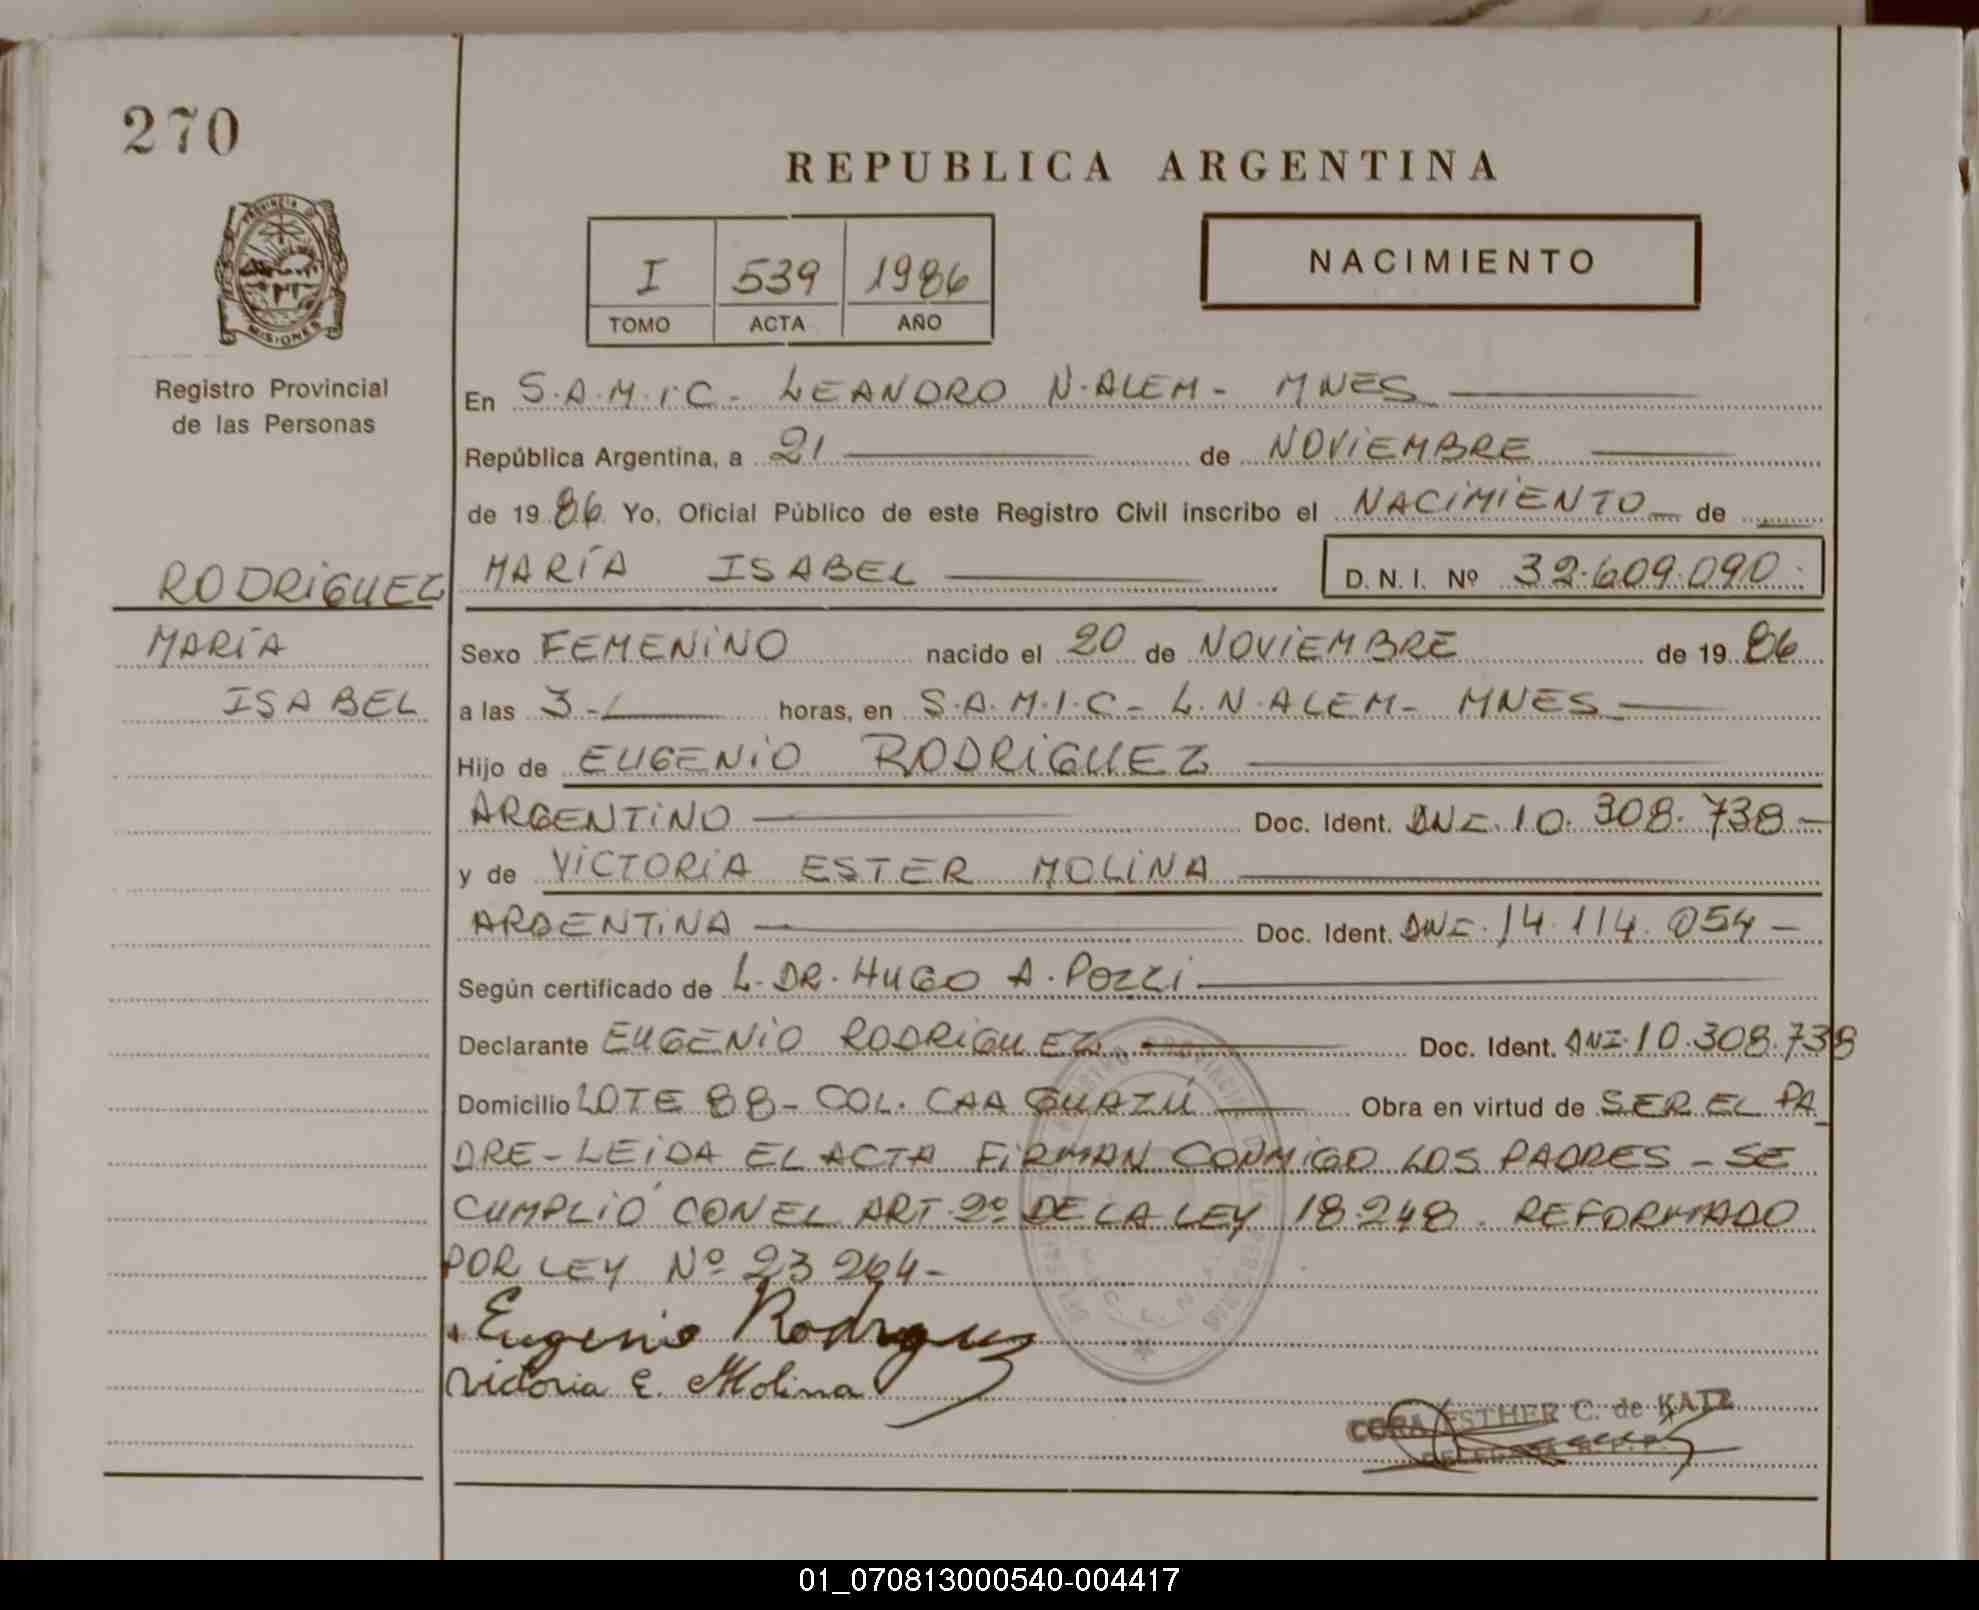 270
REPUBLICA ARGENTINA
PROVINCIA D
MISIONES
Registro Provincial
de las Personas
I 539 1986
TOMO ACTA AÑO
NACIMIENTO
En S.A.M.I.C - LEANDRO N. ALEM - MNES
República Argentina, a 21 de NOVIEMBRE
de 1986 Yo, Oficial Público de este Registro Civil inscribo el NACIMIENTO de
RODRIGUEZ MARÍA ISABEL D.N.I. Nº 32.609.090
MARÍA
ISABEL
Sexo FEMENINO nacido el 20 de NOVIEMBRE de 1986
a las 3 horas, en S.A.M.I.C - L.N. ALEM - MNES
Hijo de EUGENIO RODRIGUEZ
ARGENTINO Doc. Ident. DNI. 10.308.738-
y de VICTORIA ESTER MOLINA
ARGENTINA Doc. Ident. DNI. 14.114.054-
Según certificado de L. DR. HUGO A. POZZI
Declarante EUGENIO RODRIGUEZ Doc. Ident. DNI 10.308.738
Domicilio LOTE 88 - COL. CAA GUAZÚ Obra en virtud de SER EL PA
DRE - LEIDA EL ACTA FIRMAN CONMIGO LOS PADRES - SE
CUMPLIÓ CON EL ART. 2º DE LA LEY 18.248. REFORMADO
POR LEY Nº 23264-
Eugenio Rodriguez
Victoria E. Molina
CORA ESTHER C. de KATZ
DELEGADA R. P. P.
01_070813000540-004417